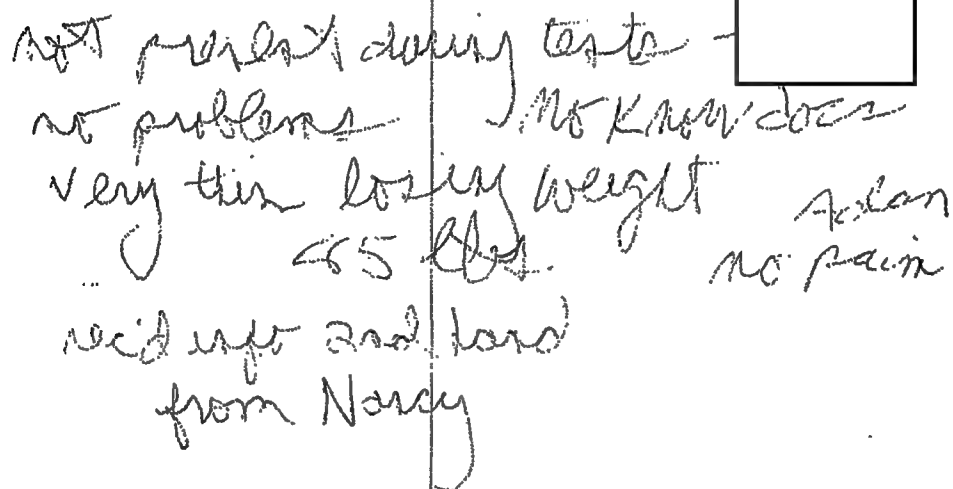 not present during tests -
no problems No know docs
very thin losing weight
<65 lbs. no pain
rec'd info and
from Nancy